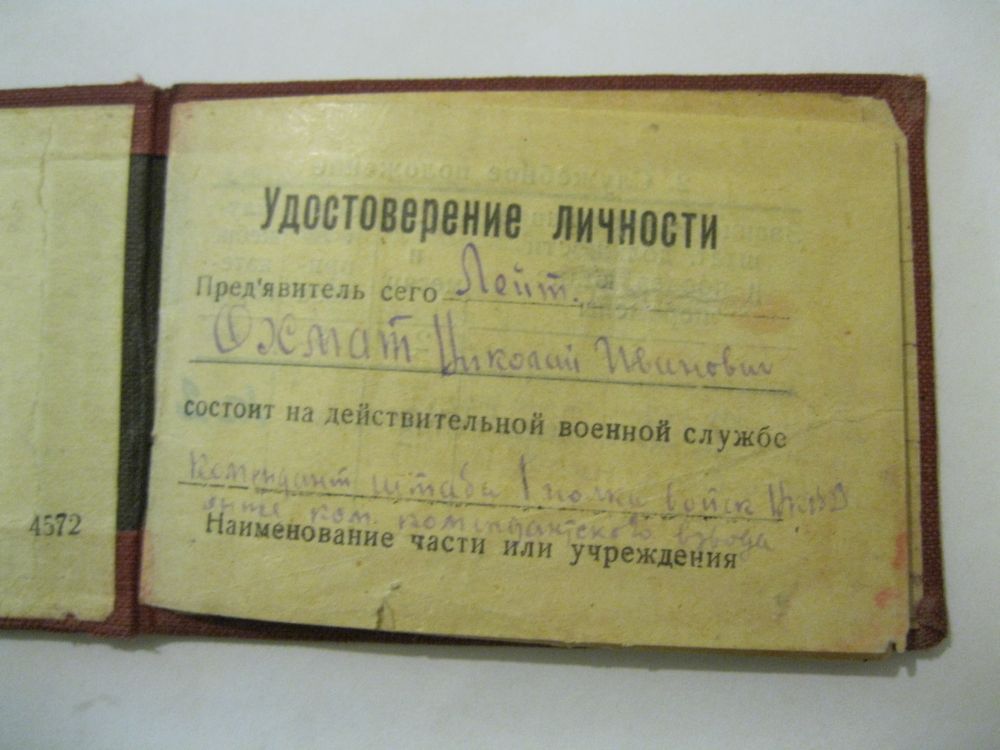 4572
Удостоверение личности
Пред'явитель сего Лейт.
Охмат Николай Иванович
состоит на действительной военной службе
комендант штаба 1 полка войск НКВД
он же ком. комендантского взвода
Наименование части или учреждения